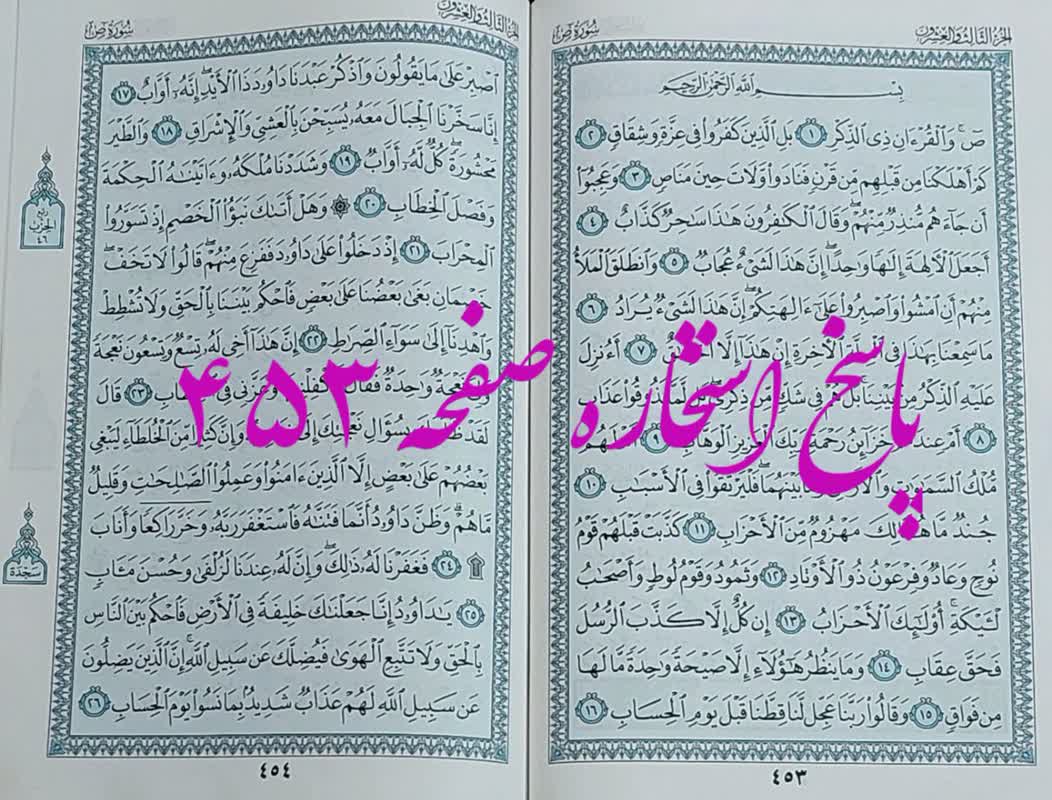 الجزء الثالث والعشرون
سورة ص
بِسْمِ اللَّهِ الرَّحْمَٰنِ الرَّحِيمِ
صٓ ۚ وَالْقُرْءَانِ ذِي الذِّكْرِ ١ بَلِ الَّذِينَ كَفَرُوا فِي عِزَّةٍ وَشِقَاقٍ ٢
كَمْ أَهْلَكْنَا مِن قَبْلِهِم مِّن قَرْنٍ فَنَادَوا وَّلَاتَ حِينَ مَنَاصٍ ٣ وَعَجِبُوا
أَن جَاءَهُم مُّنذِرٌ مِّنْهُمْ ۖ وَقَالَ الْكَٰفِرُونَ هَٰذَا سَٰحِرٌ كَذَّابٌ ٤
أَجَعَلَ الْءَالِهَةَ إِلَٰهًا وَٰحِدًا ۖ إِنَّ هَٰذَا لَشَيْءٌ عُجَابٌ ٥ وَانطَلَقَ الْمَلَأُ
مِنْهُمْ أَنِ امْشُوا وَاصْبِرُوا عَلَىٰ ءَالِهَتِكُمْ ۖ إِنَّ هَٰذَا لَشَيْءٌ يُرَادُ ٦
مَا سَمِعْنَا بِهَٰذَا فِي الْءَاخِرَةِ إِنْ هَٰذَا إِلَّا ٧ أَءُنزِلَ
عَلَيْهِ الذِّكْرُ مِن بَيْنِنَا ۚ بَلْ هُمْ فِي شَكٍّ مِّن ذِكْرِي ۖ بَل لَّمَّا يَذُوقُوا عَذَابِ
٨ أَمْ عِندَهُمْ خَزَائِنُ رَحْمَةِ رَبِّكَ الْعَزِيزِ الْوَهَّابِ ٩ أَمْ لَهُم
مُّلْكُ السَّمَٰوَٰتِ وَالْأَرْضِ وَمَا بَيْنَهُمَا ۖ فَلْيَرْتَقُوا فِي الْأَسْبَٰبِ ١٠
جُندٌ مَّا هُنَالِكَ مَهْزُومٌ مِّنَ الْأَحْزَابِ ١١ كَذَّبَتْ قَبْلَهُمْ قَوْمُ
نُوحٍ وَعَادٌ وَفِرْعَوْنُ ذُو الْأَوْتَادِ ١٢ وَثَمُودُ وَقَوْمُ لُوطٍ وَأَصْحَٰبُ
لْـَٔيْكَةِ ۚ أُولَٰئِكَ الْأَحْزَابُ ١٣ إِن كُلٌّ إِلَّا كَذَّبَ الرُّسُلَ
فَحَقَّ عِقَابِ ١٤ وَمَا يَنظُرُ هَٰؤُلَاءِ إِلَّا صَيْحَةً وَٰحِدَةً مَّا لَهَا
مِن فَوَاقٍ ١٥ وَقَالُوا رَبَّنَا عَجِّل لَّنَا قِطَّنَا قَبْلَ يَوْمِ الْحِسَابِ ١٦
٤٥٣
الجزء الثالث والعشرون
سورة ص
اصْبِرْ عَلَىٰ مَا يَقُولُونَ وَاذْكُرْ عَبْدَنَا دَاوُۥدَ ذَا الْأَيْدِ ۖ إِنَّهُۥ أَوَّابٌ ١٧
إِنَّا سَخَّرْنَا الْجِبَالَ مَعَهُۥ يُسَبِّحْنَ بِالْعَشِيِّ وَالْإِشْرَاقِ ١٨ وَالطَّيْرَ
مَحْشُورَةً ۖ كُلٌّ لَّهُۥ أَوَّابٌ ١٩ وَشَدَدْنَا مُلْكَهُۥ وَءَاتَيْنَٰهُ الْحِكْمَةَ
وَفَصْلَ الْخِطَابِ ٢٠ ۞ وَهَلْ أَتَىٰكَ نَبَؤُا الْخَصْمِ إِذْ تَسَوَّرُوا
الْمِحْرَابَ ٢١ إِذْ دَخَلُوا عَلَىٰ دَاوُۥدَ فَفَزِعَ مِنْهُمْ ۖ قَالُوا لَا تَخَفْ ۖ
خَصْمَانِ بَغَىٰ بَعْضُنَا عَلَىٰ بَعْضٍ فَاحْكُم بَيْنَنَا بِالْحَقِّ وَلَا تُشْطِطْ
وَاهْدِنَا إِلَىٰ سَوَاءِ الصِّرَٰطِ ٢٢ إِنَّ هَٰذَا أَخِي لَهُۥ تِسْعٌ وَتِسْعُونَ نَعْجَةً
نَعْجَةٌ وَٰحِدَةٌ فَقَالَ أَكْفِلْنِيهَا وَعَزَّنِي فِي الْخِطَابِ ٢٣ قَالَ
لَقَدْ ظَلَمَكَ بِسُؤَالِ نَعْجَتِكَ إِلَىٰ نِعَاجِهِۦ ۖ وَإِنَّ كَثِيرًا مِّنَ الْخُلَطَاءِ لَيَبْغِي
بَعْضُهُمْ عَلَىٰ بَعْضٍ إِلَّا الَّذِينَ ءَامَنُوا وَعَمِلُوا الصَّٰلِحَٰتِ وَقَلِيلٌ
مَّا هُمْ ۗ وَظَنَّ دَاوُۥدُ أَنَّمَا فَتَنَّٰهُ فَاسْتَغْفَرَ رَبَّهُۥ وَخَرَّ رَاكِعًا وَأَنَابَ
۩ ٢٤ فَغَفَرْنَا لَهُۥ ذَٰلِكَ ۖ وَإِنَّ لَهُۥ عِندَنَا لَزُلْفَىٰ وَحُسْنَ مَـَٔابٍ
٢٥ يَٰدَاوُۥدُ إِنَّا جَعَلْنَٰكَ خَلِيفَةً فِي الْأَرْضِ فَاحْكُم بَيْنَ النَّاسِ
بِالْحَقِّ وَلَا تَتَّبِعِ الْهَوَىٰ فَيُضِلَّكَ عَن سَبِيلِ اللَّهِ ۚ إِنَّ الَّذِينَ يَضِلُّونَ
عَن سَبِيلِ اللَّهِ لَهُمْ عَذَابٌ شَدِيدٌ بِمَا نَسُوا يَوْمَ الْحِسَابِ ٢٦
٤٥٤
ربع
الحزب
٤٦
سجدة
پاسخ استخاره صفحه ۴۵۳